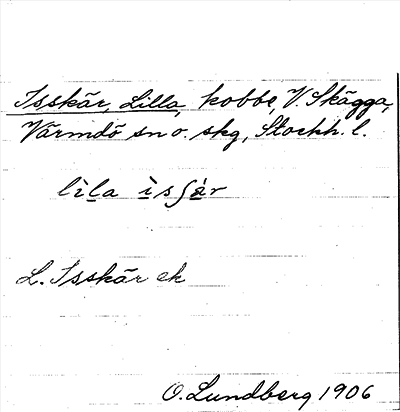 Isskär, Lilla, kobbe, V. Skägga,
Värmdö sn o. skg, Stockh. l.
lìla ìsʃàr
L. Isskär ek
O. Lundberg 1906